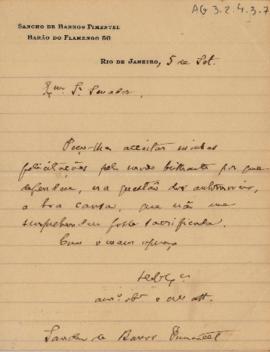 AG 3.2.4.3.7
SANCHO DE BARROS PIMENTEL
BARÃO DO FLAMENGO 50
RIO DE JANEIRO, 5 de Set.
Exmo Sr Senador.
Peço-lhe aceitar minhas
felicitações pelo modo brilhante por que
defendeu, na questão dos
a boa causa, que não me
surpreendeu fosse sacrificada.
Com o maior apreço
Sancho de Barros Pimentel